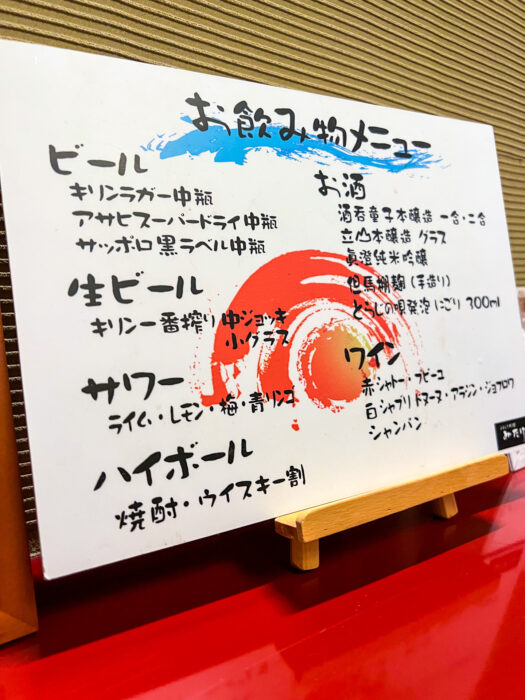 お飲み物メニュー
ビール
キリンラガー中瓶
アサヒスーパードライ中瓶
サッポロ黒ラベル中瓶
生ビール
キリン一番搾り 中ジョッキ
小グラス
サワー
ライム・レモン・梅・青リンゴ
ハイボール
焼酎・ウイスキー割
お酒
酒呑童子本醸造 一合・二合
立山本醸造 グラス
真澄純米吟醸
但馬 麹 (手造り)
どらじの唄発泡 にごり 300ml
ワイン
赤 シャトー・プピーユ
白 シャブリ ドメーヌ・アラン・ジョフロワ
シャンパン